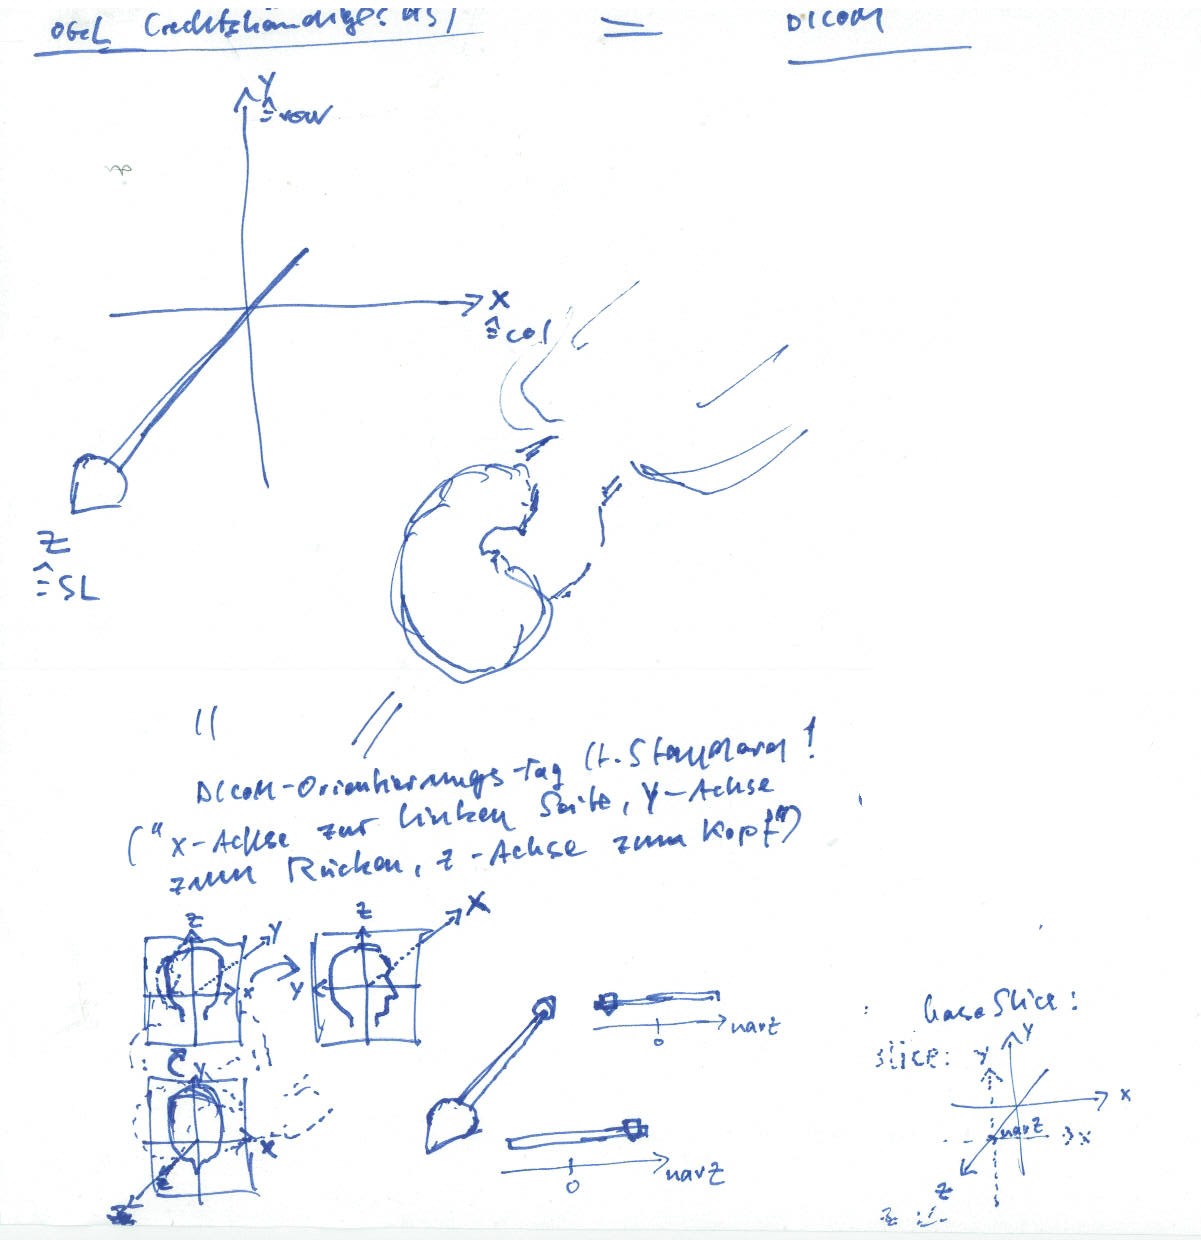 OGeL (rechtshändiges KS) = DICOM
Y
≙ row
X
≙ col
Z
≙ SL
DICOM-Orientierungs-Tag (lt. Standard!
("x-Achse zur linken Seite, Y-Achse
zum Rücken, z-Achse zum Kopf")
Z Y X
Z X Y
navZ
0
Y X Z
navZ
0
baseSlice:
slice: Y Y
X
navZ X
Z